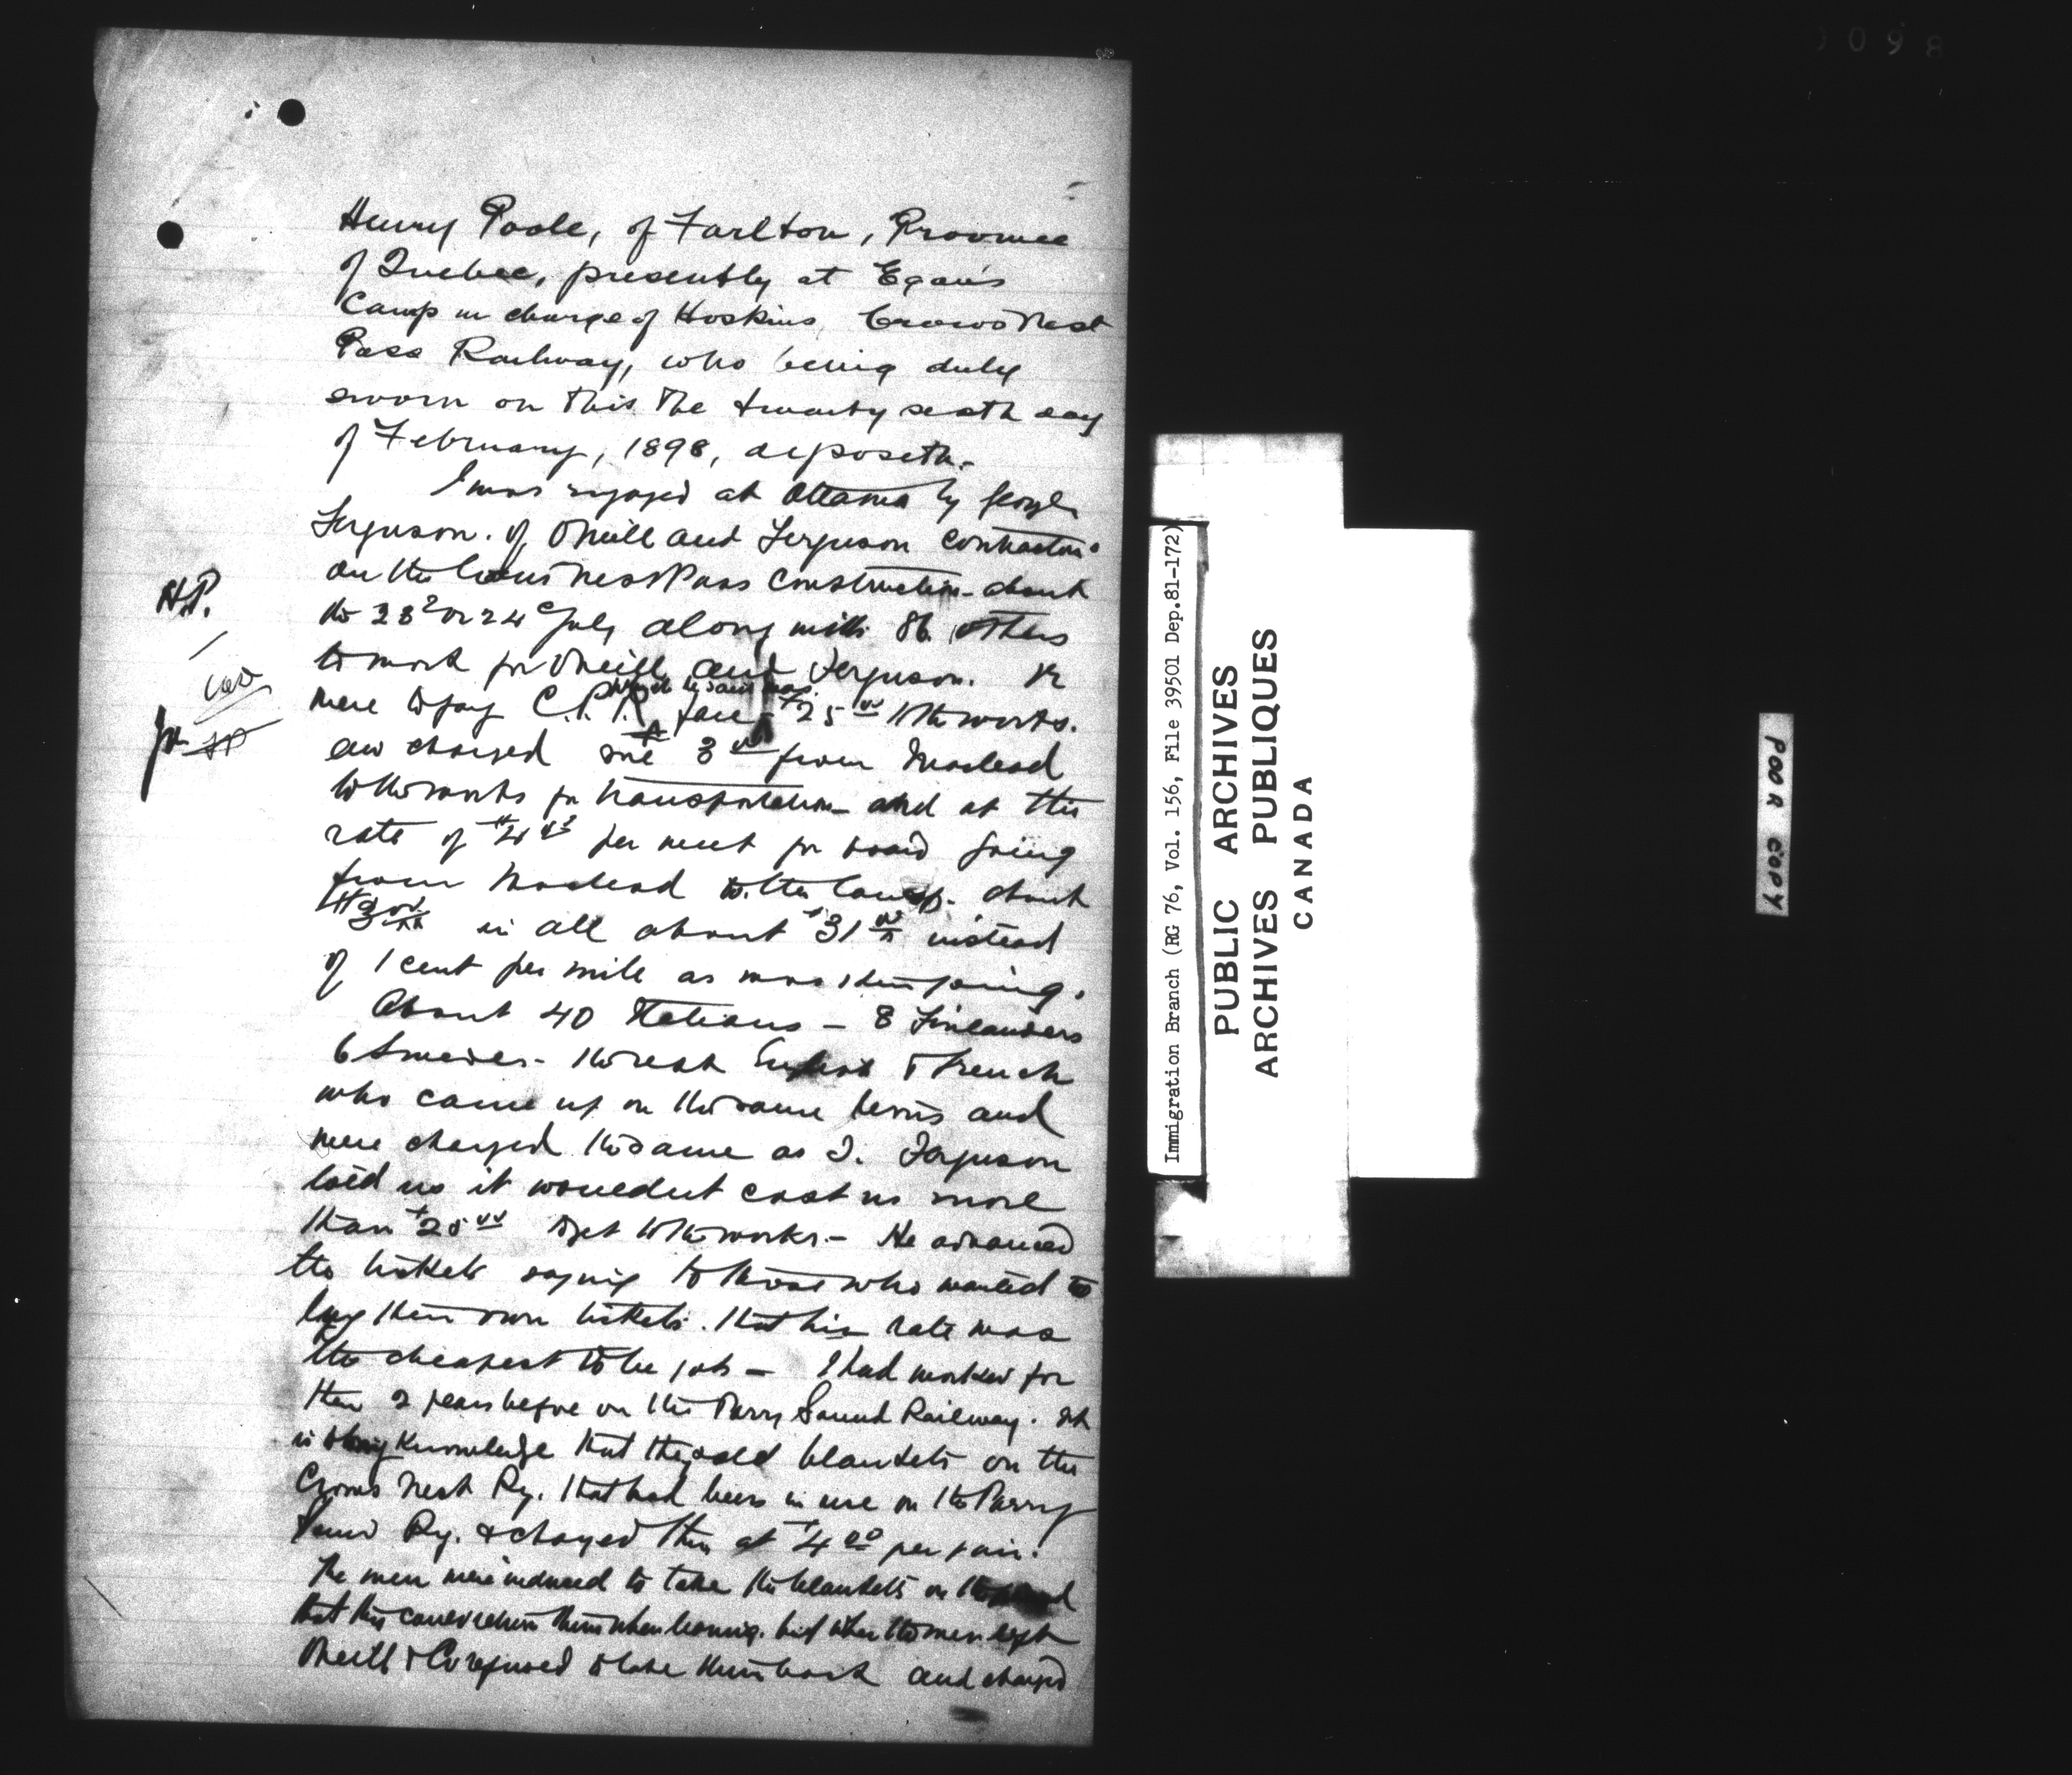 Henry Poole, of Farlton, Province
of Quebec, presently at Egan's
Camp in charge of Hoskins, Crows Nest
Pass Railway, who being duly
sworn on this the twenty sixth day
of February, 1898, deposeth.
I was engaged at Ottawa by George
Ferguson. of Oneill and Ferguson contractors
on the Crows Nest Pass construction about
the 23d or 24th July along with 86 others
to work for Oneill and Ferguson. We
which he said was
were to pay C.P.R. fare $25.00 to the works.
H.P.
and charged me 3.00 from Macleod
to the works for transportation and at the
rate of $4 per week for board going
from Macleod to the Camp. about
$3.00 in all about $31.00 instead
of 1 cent per mile as was then going.
About 40 Italians - 8 Finlanders
6 Swedes - the rest English & French
who came up on the same terms and
were charged the same as I. Ferguson
told us it wouldent cost us more
than $25.00 to get to the works. - He advanced
the tickets saying to those who wanted to
buy their own tickets. that his rate was
the cheapest to be got - I had worked for
them 2 years before on the Parry Sound Railway. It
is to my knowledge that they sold blankets on the
Crows Nest Ry. that had been in use on the Parry
Sound Ry. & charged them at $4.00 per pair.
The men were induced to take the blankets on the
that they could return them when leaving. but when the men left
Oneill & Co refused to take them back and charged
Immigration Branch (RG 76, Vol. 156, File 39501 Dep.81-172)
PUBLIC ARCHIVES
ARCHIVES PUBLIQUES
CANADA
POOR COPY